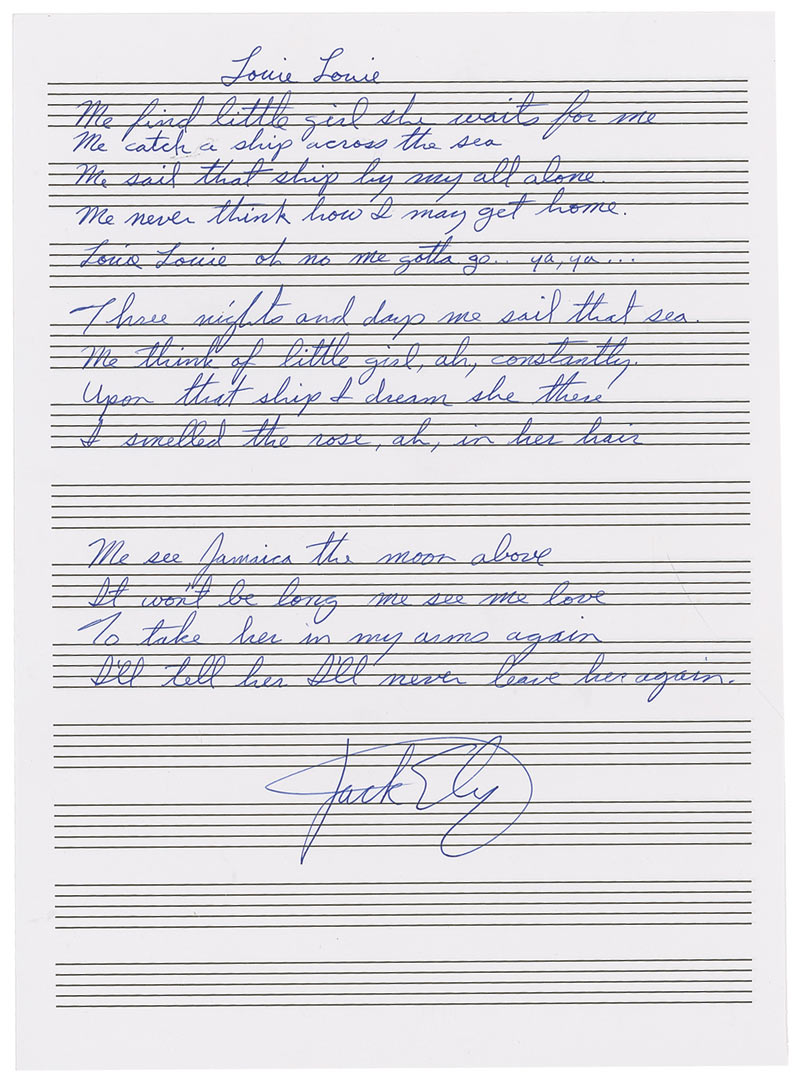 Louie Louie
Me find little girl she waits for me
Me catch a ship across the sea
Me sail that ship by my all alone.
Me never think how I may get home.
Louie Louie oh no me gotta go.. ya, ya...
Three nights and days me sail that sea.
Me think of little girl, ah, constantly.
Upon that ship I dream she there
I smelled the rose, ah, in her hair
Me see Jamaica the moon above
It won't be long me see me love
To take her in my arms again
I'll tell her I'll never leave her again.
Jack Ely